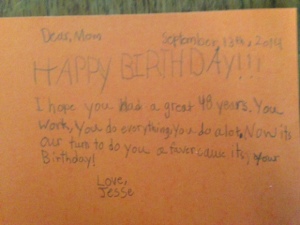 Dear, Mom September, 13th, 2014
HAPPY BIRTHDAY!!!
I hope you had a great 48 years. You
work, You do everything, you do alot, Now its
our turn to do you a favor cause its, your
Birthday!
Love,
Jesse